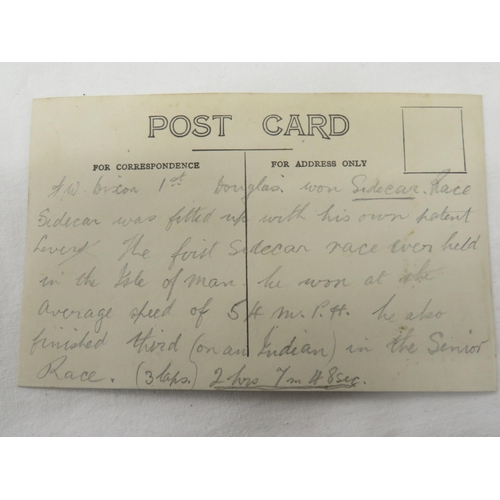 POST CARD
FOR CORRESPONDENCE
FOR ADDRESS ONLY
F.W. Dixon 1st Douglas. won Sidecar. Race
Sidecar was fitted up with his own patent
Levers. The first Sidecar race ever held
in the Isle of man. he won at the
average speed of 54 m.P.H. he also
finished third (on an Indian) in the Senior
Race. (3 laps.) 2 hrs 7 m 48 sec.